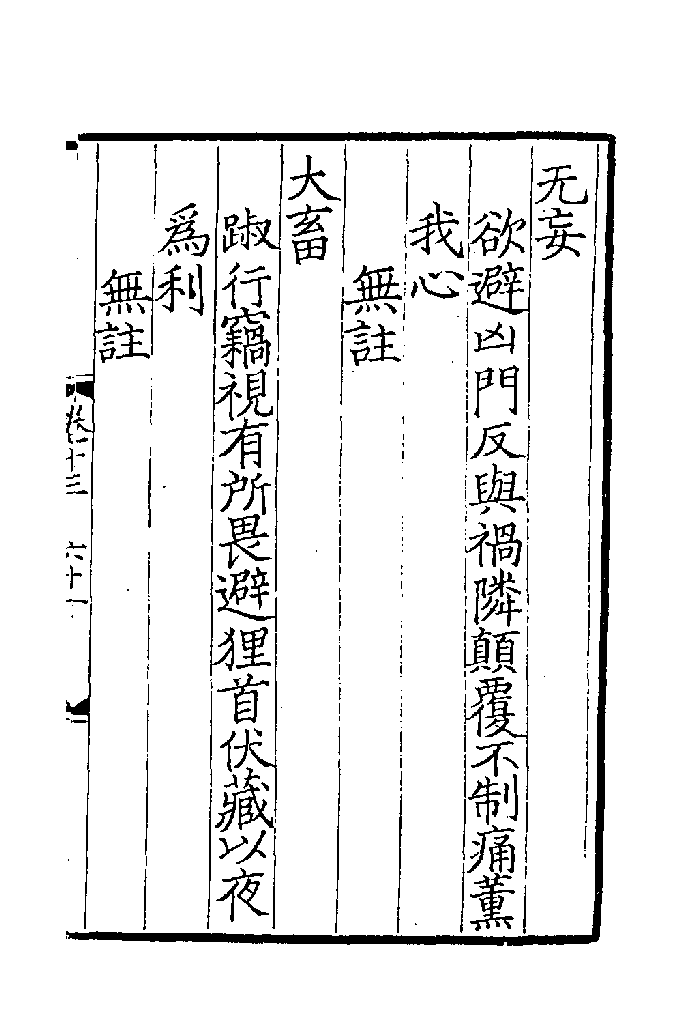 无妄
欲避凶門反與禍隣顛覆不制痛薰
我心
無註
大畜
踧行竊視有所畏避狸首伏藏以夜
爲利
無註
卷十三 六十一